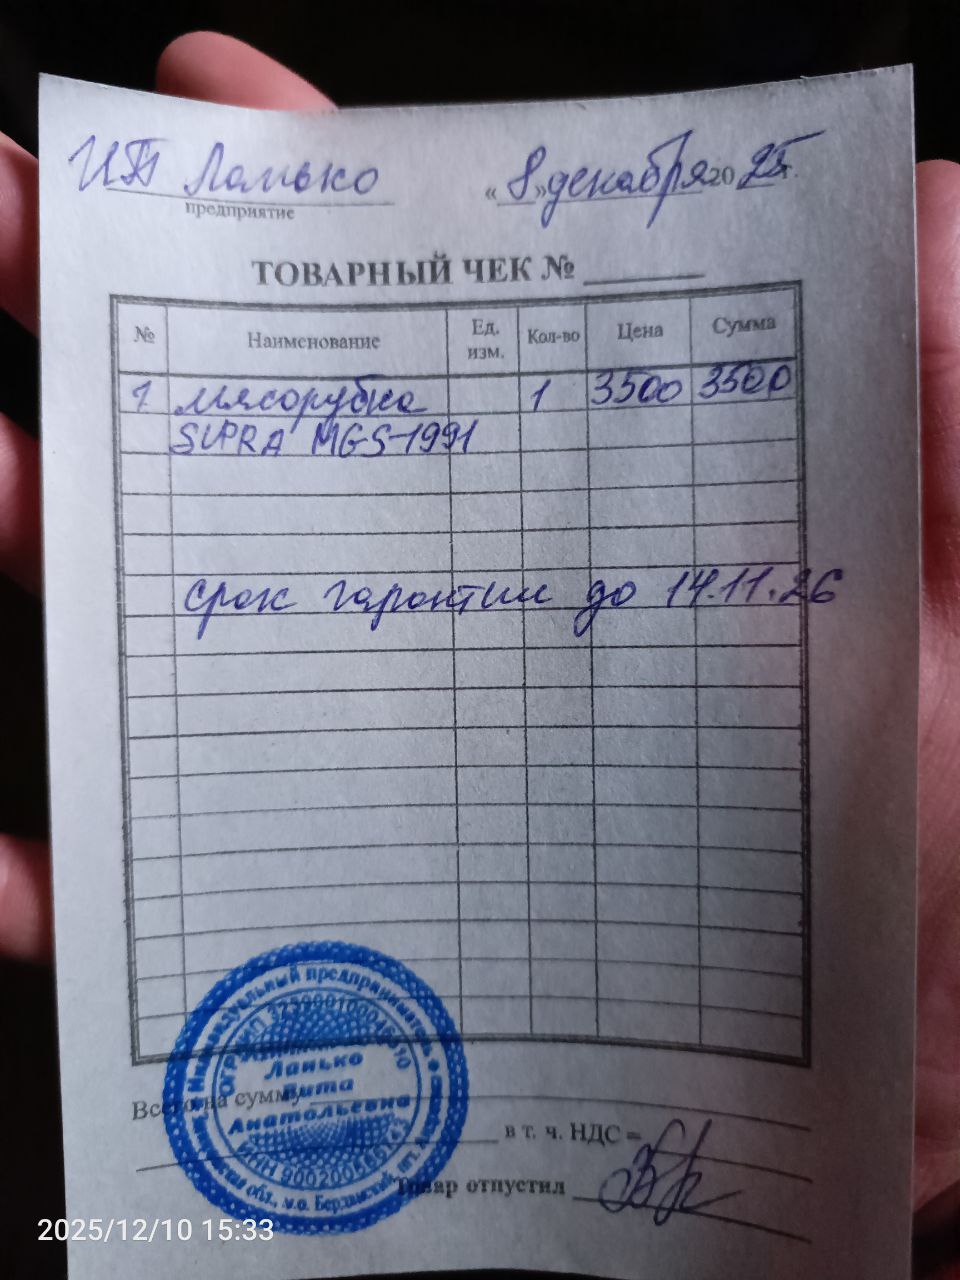 ИП Ланько
предприятие
«8» декабря 2025 г.
ТОВАРНЫЙ ЧЕК №
№ Наименование Ед. изм. Кол-во Цена Сумма
1 мясорубка 1 3500 3500
SUPRA MGS-1991
срок гарантии до 14.11.26
Индивидуальный предприниматель
ОГРНИП
Ланько
Вита
Анатольевна
ИНН
Всего на сумму
в т. ч. НДС =
Товар отпустил
2025/12/10 15:33